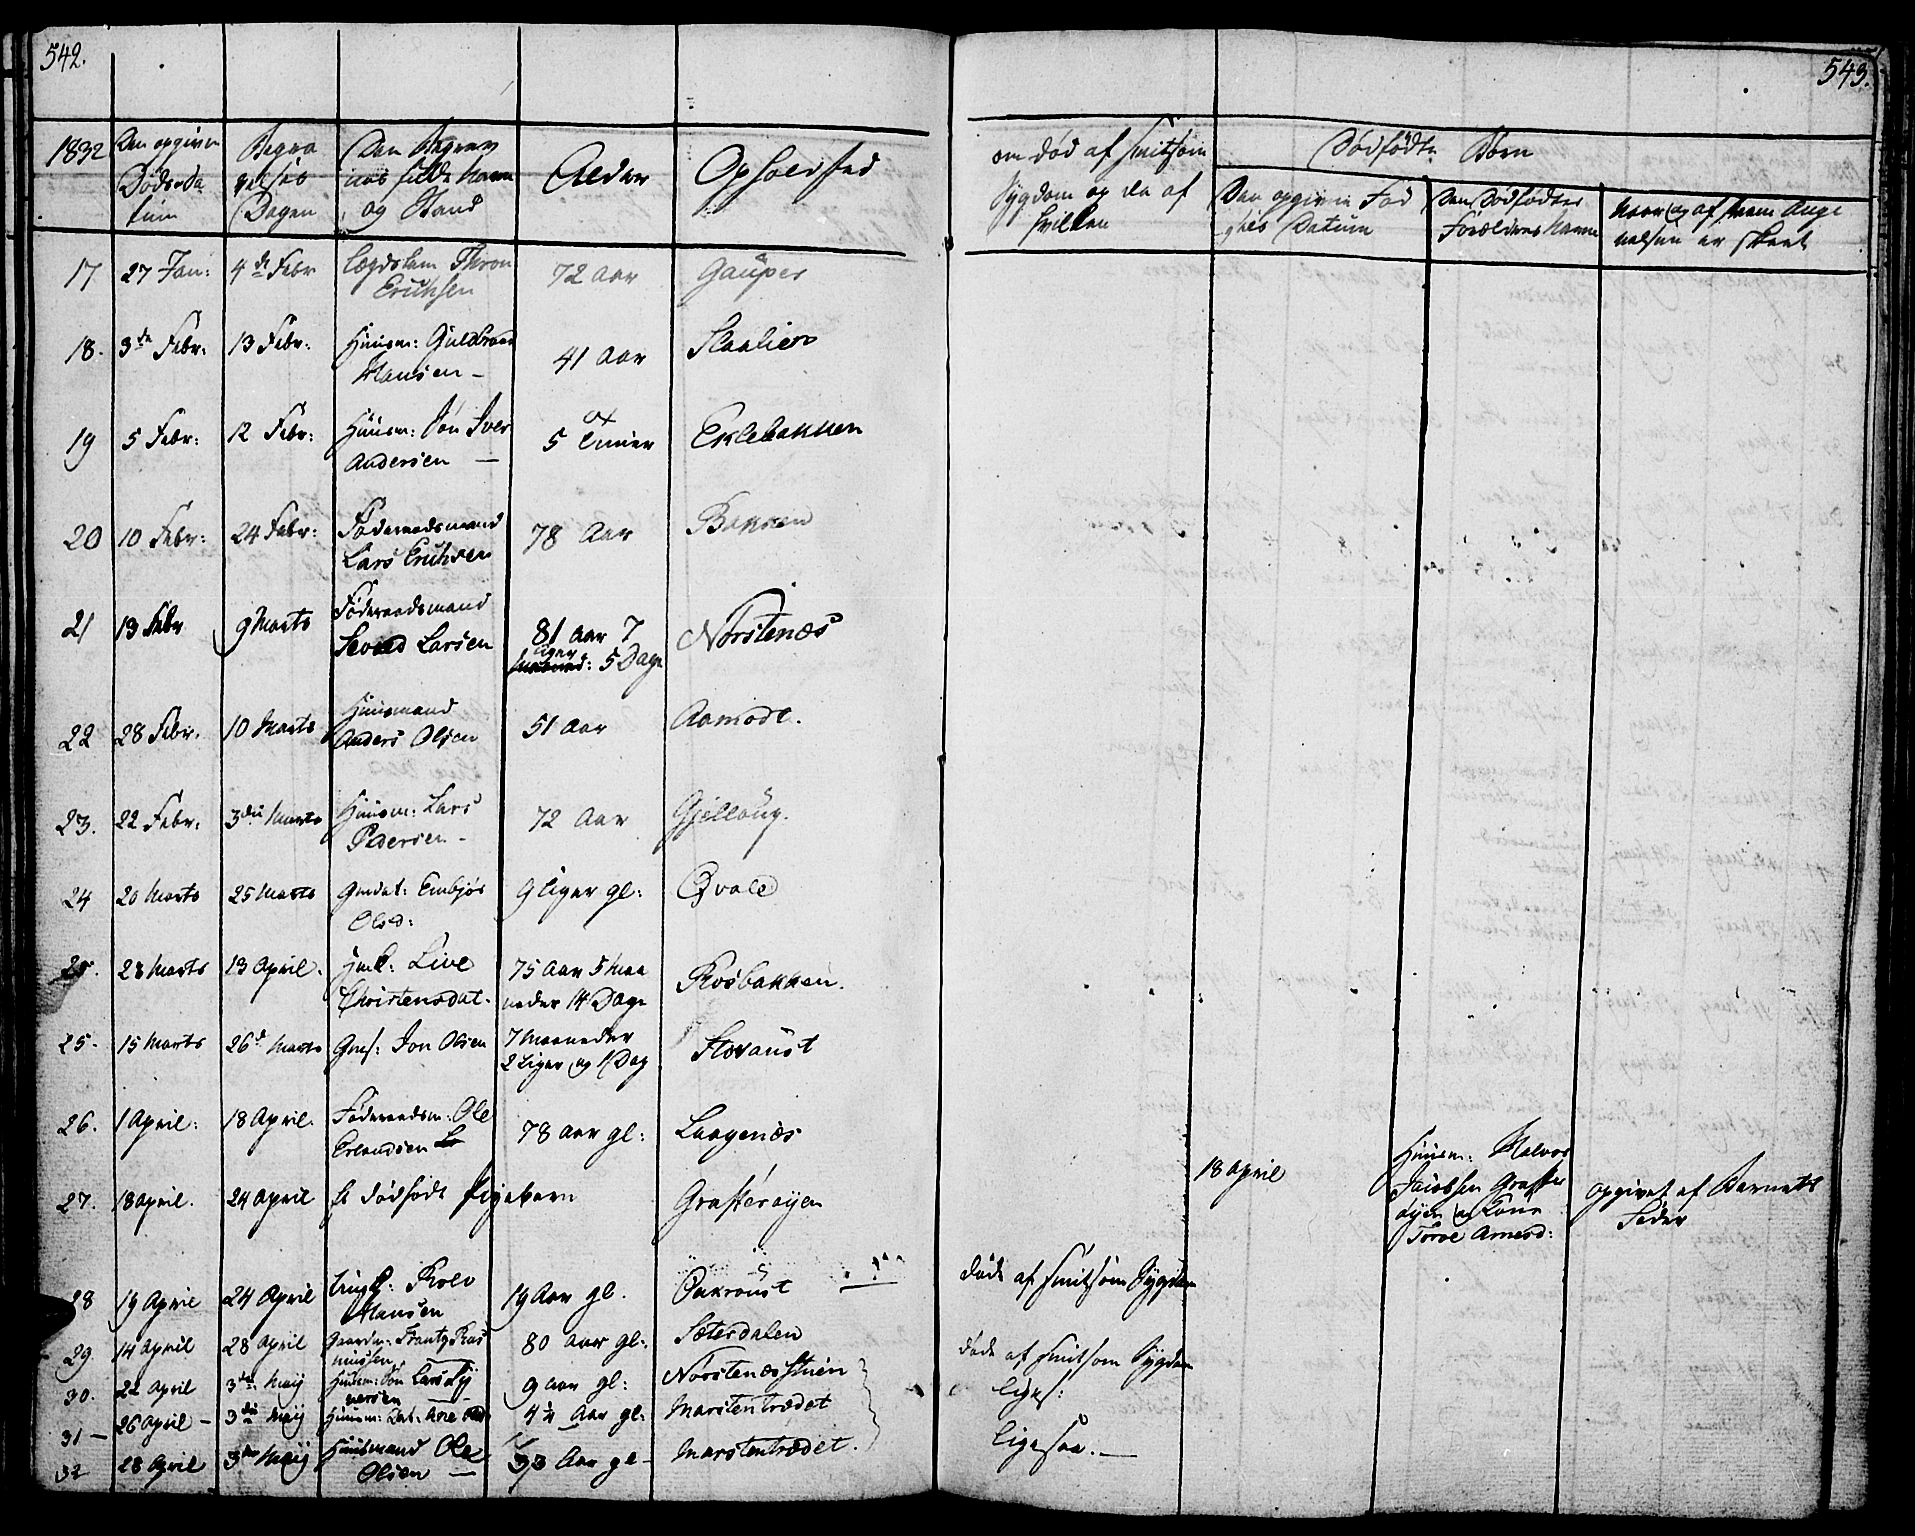 542.
543.
1832 Den opgivne Døds-Datum
Begravelses Dagen
Den Begravnes fulde Navn og Stand
Alder
Opholdsted
om død af smitsom Sygdom og da af hvilken
Dødfødte Børn
Den opgivne Fødsels Datum
Den Dødfødtes Forældres Navne
Naar og af hvem Angivelsen er skeet
17 27 Jan: 4de Febr Lægdslem Thron Erichsen 72 Aar Gaŭper
18. 3de Febr: 13 Febr: Huusm: Guldbrand Hansen - 41 Aar Staalien
19 5 Febr: 12 Febr: Huusm: Søn Iver Andersen — 5 Timer Eklebakken
20 10 Febr: 24 Febr: Føderaadsmand Lars Erichsen 78 Aar Bakken
21 13 Febr 9 Marts Føderaadsmand Larsen 81 Aar 7 Uger 5 Dage Norstenæs
22 28 Febr. 10 Marts Huusmand Anders Olsen 51 Aar Aamodt.
23. 22 Febr: 3die Marts Huusm: Lars Pedersen - 72 Aar Gjelloug.
24 20 Marts 25 Marts Gmdat: Embjør Olsd: 9 Uger gl: Qvale
25. 28 Marts 13 April. Live Christensdat. 75 Aar 5 Maaneder 14 Dage Rosbakken.
25. 15 Marts 26d Marts Gms: Jon Olsen 7 Maaneder 2 Uger og 1 Dag Storaust
26. 1 April: 18 April. Føderaadsm: Ole Erlandsen 78 Aar gl: Laagenæs
27. 18 april. 24 April Et dødfødt Pigebarn Grafferøyen
18 April
Huusm: Halvor Jacobsen Grafferøyen og Kone Torve Arnesd:
opgivet af Barnets Fader
28 19 April 24 April Ungk: Rolv Hansen 19 Aar gl. Opakroust død af smitsom Sygdom
29. 14 April 28 April Gaardm: Frantz Rasmussen 80 Aar gl: Sæterdalen død af smitsom Sygdom
30. 22 April 3die Maij Huusm: Søn Lars Syversen 9 aar gl: Norstenæsstuen liges:
31 — 26 April - 3die Maij Huusm: Dat: Ane 4½ Aar gl: Marstentrædet
32 28 April 3die Maij Huusmand Ole Olsen — 33 Aar gl - Marstentrædet. ligesaa. —